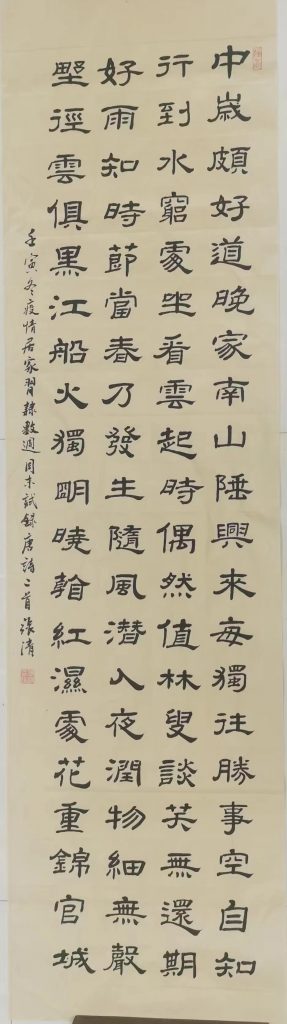 中歲頗好道晚家南山陲興來每獨往勝事空自知
行到水窮處坐看雲起時偶然值林叟談笑無還期
好雨知時節當春乃發生隨風潛入夜潤物細無聲
野徑雲俱黑江船火獨明曉看紅濕處花重錦官城
壬寅冬疫情居家習隸數週周末試錄唐詩二首張清